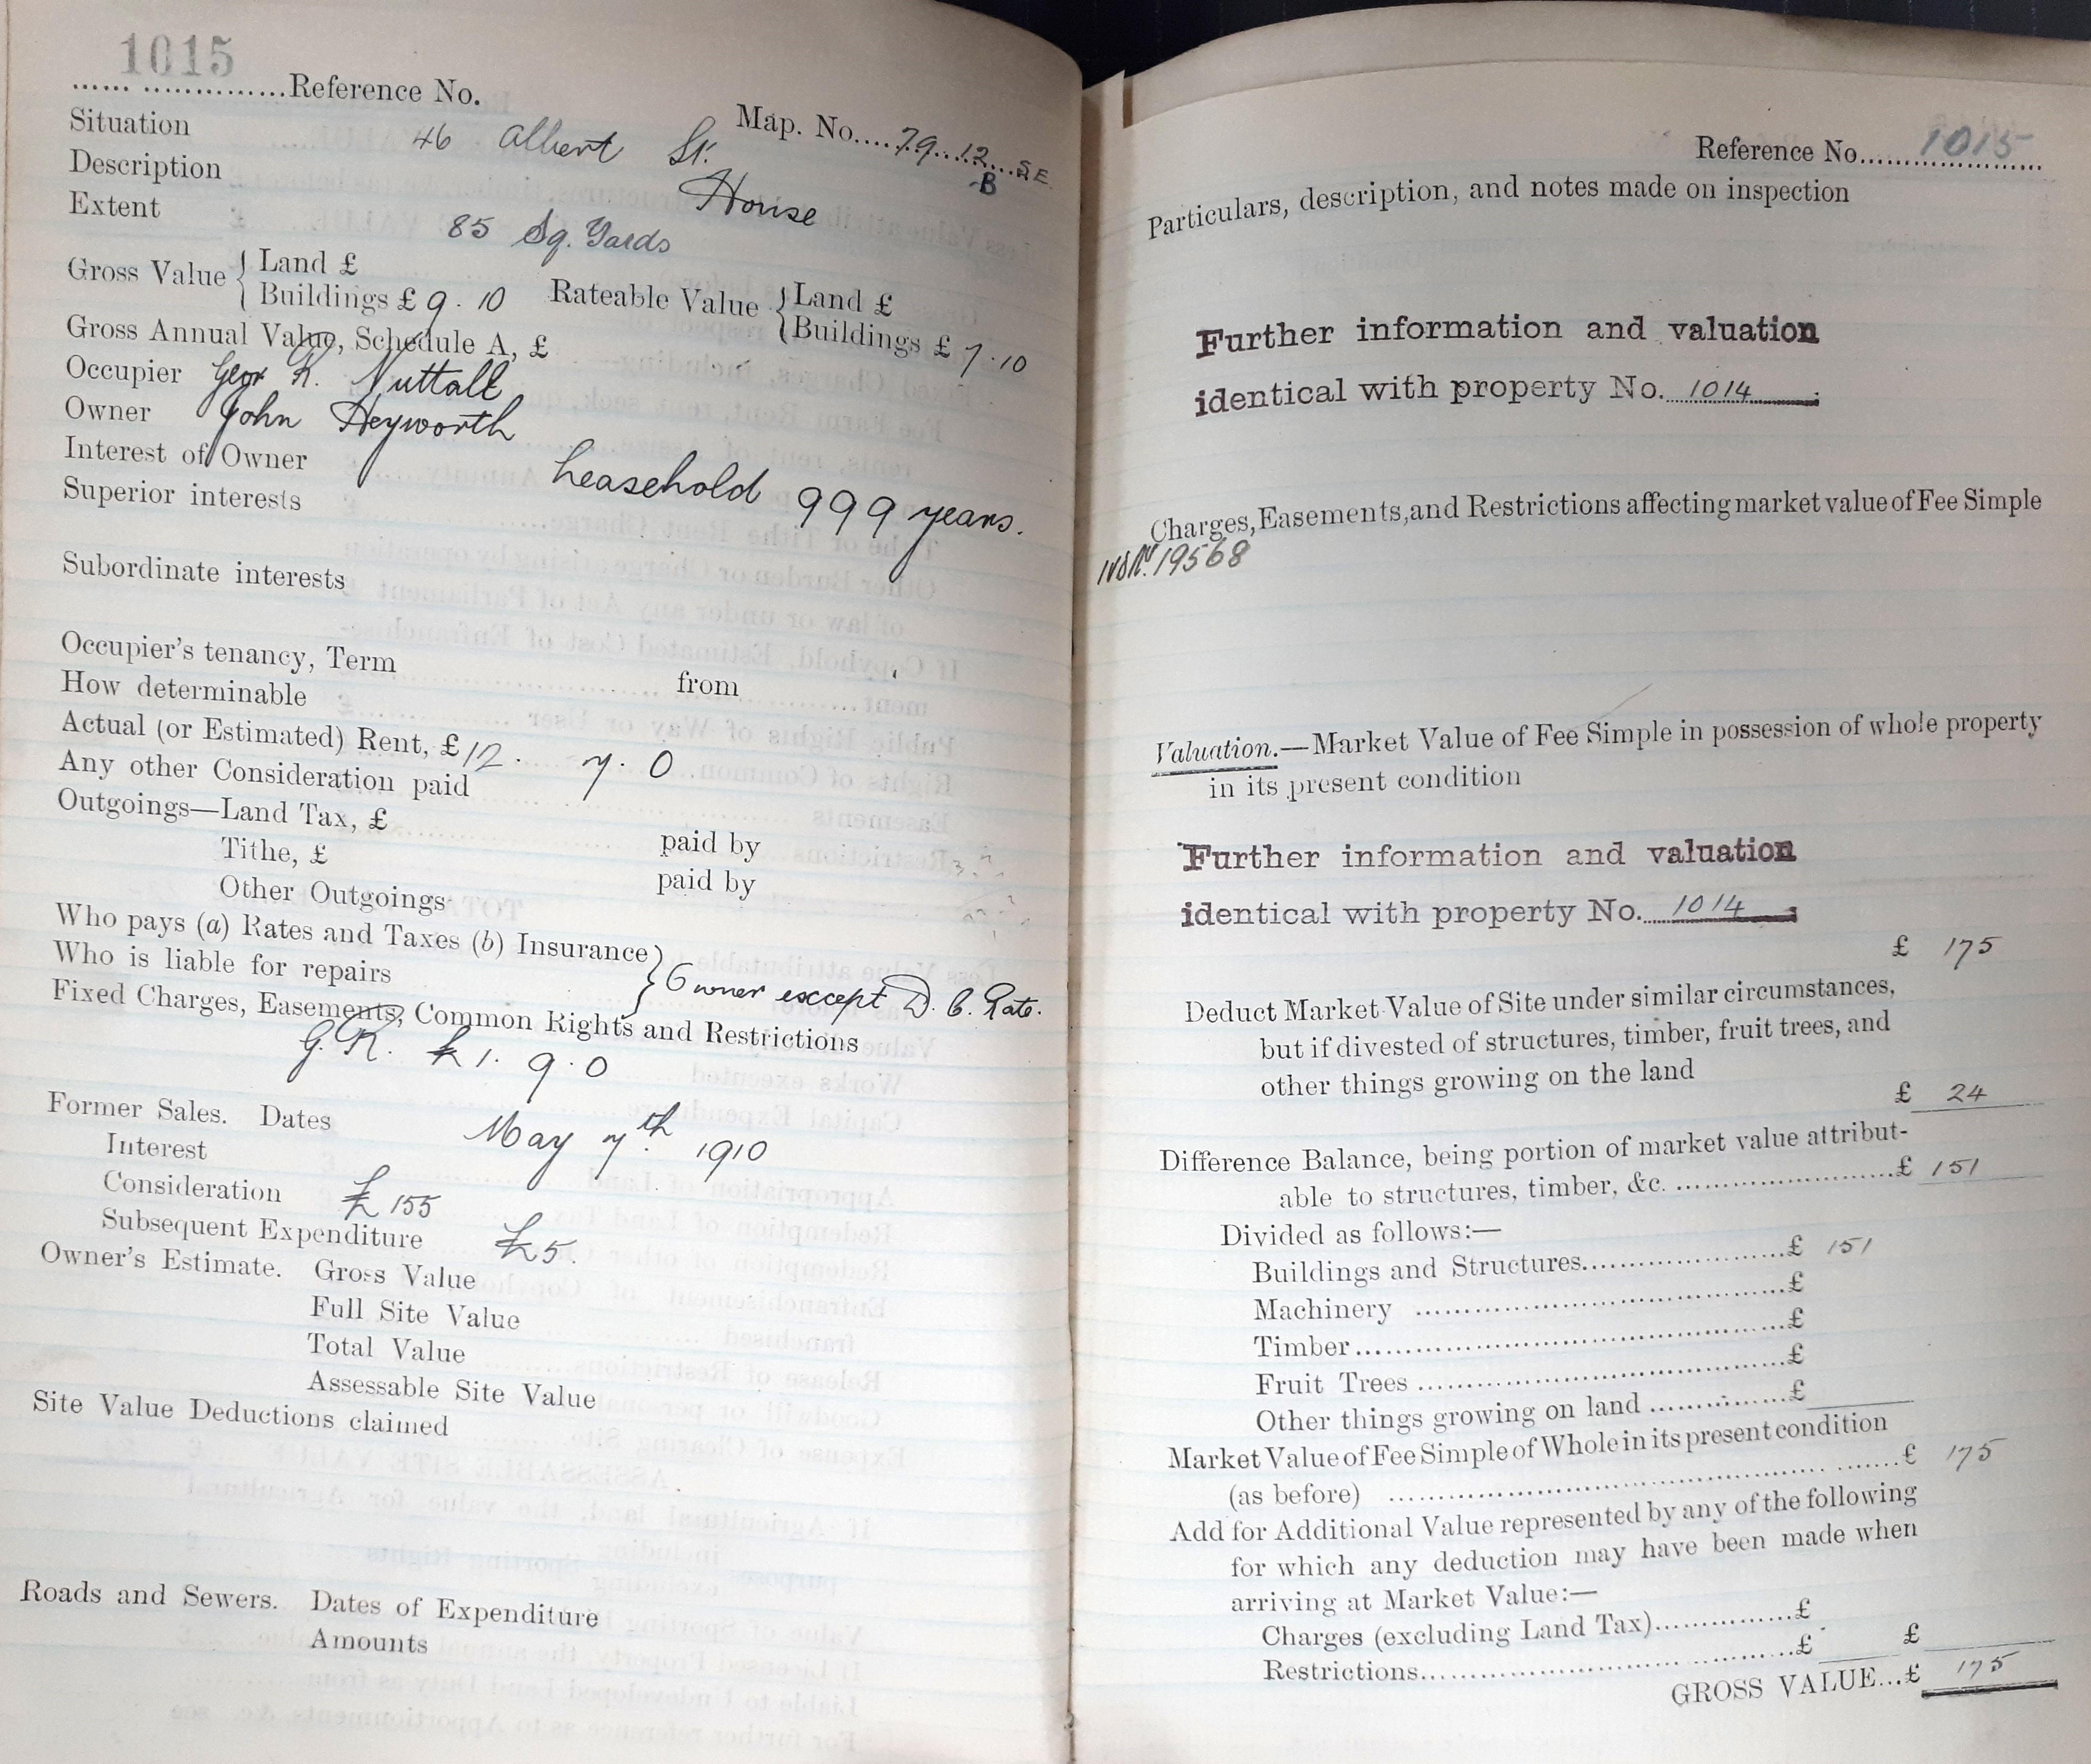 1015
Reference No.
Map. No. 79 12 S.E.
B
Situation 46 Albert St.
Description House
Extent 85 Sq. Yards
Gross Value { Land £
Buildings £ 9. 10
Rateable Value { Land £
Buildings £ 7. 10
Gross Annual Value, Schedule A, £
Occupier Geor R. Nuttall
Owner John Heyworth
Interest of Owner Leasehold 999 years.
Superior interests
Subordinate interests
Occupier's tenancy, Term from
How determinable
Actual (or Estimated) Rent, £12. 7. 0
Any other Consideration paid
Outgoings—Land Tax, £ paid by
Tithe, £ paid by
Other Outgoings
Who pays (a) Rates and Taxes (b) Insurance }
Who is liable for repairs } Owner except D. C. Rate.
Fixed Charges, Easements, Common Rights and Restrictions
G.R. £1. 9. 0
Former Sales. Dates May 7th 1910
Interest
Consideration £155
Subsequent Expenditure £5.
Owner's Estimate. Gross Value
Full Site Value
Total Value
Assessable Site Value
Site Value Deductions claimed
Roads and Sewers. Dates of Expenditure
Amounts
Reference No. 1015
Particulars, description, and notes made on inspection
Further information and valuation
identical with property No. 1014
Charges, Easements, and Restrictions affecting market value of Fee Simple
19568
Valuation.—Market Value of Fee Simple in possession of whole property
in its present condition
Further information and valuation
identical with property No. 1014
£ 175
Deduct Market Value of Site under similar circumstances,
but if divested of structures, timber, fruit trees, and
other things growing on the land
£ 24
Difference Balance, being portion of market value attribut-
able to structures, timber, &c. £ 151
Divided as follows:—
Buildings and Structures £ 151
Machinery £
Timber £
Fruit Trees £
Other things growing on land £
Market Value of Fee Simple of Whole in its present condition
(as before) £ 175
Add for Additional Value represented by any of the following
for which any deduction may have been made when
arriving at Market Value:—
Charges (excluding Land Tax) £
Restrictions £ £
GROSS VALUE...£ 175